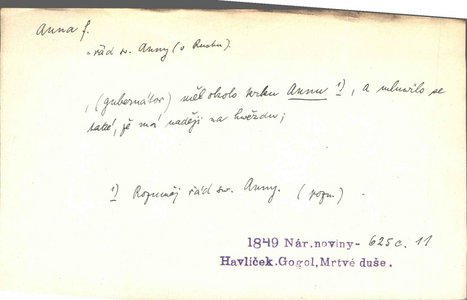 Anna f.
řád sv. Anny (v Rusku).
(gubernátor) měl okolo krku Annu 1), a mluvilo se
také, že má naději na hvězdu;
1) Rozuměj řád sv. Anny. (pozn.)
1849 Nár.noviny- 625 c. 11
Havlíček.Gogol,Mrtvé duše.